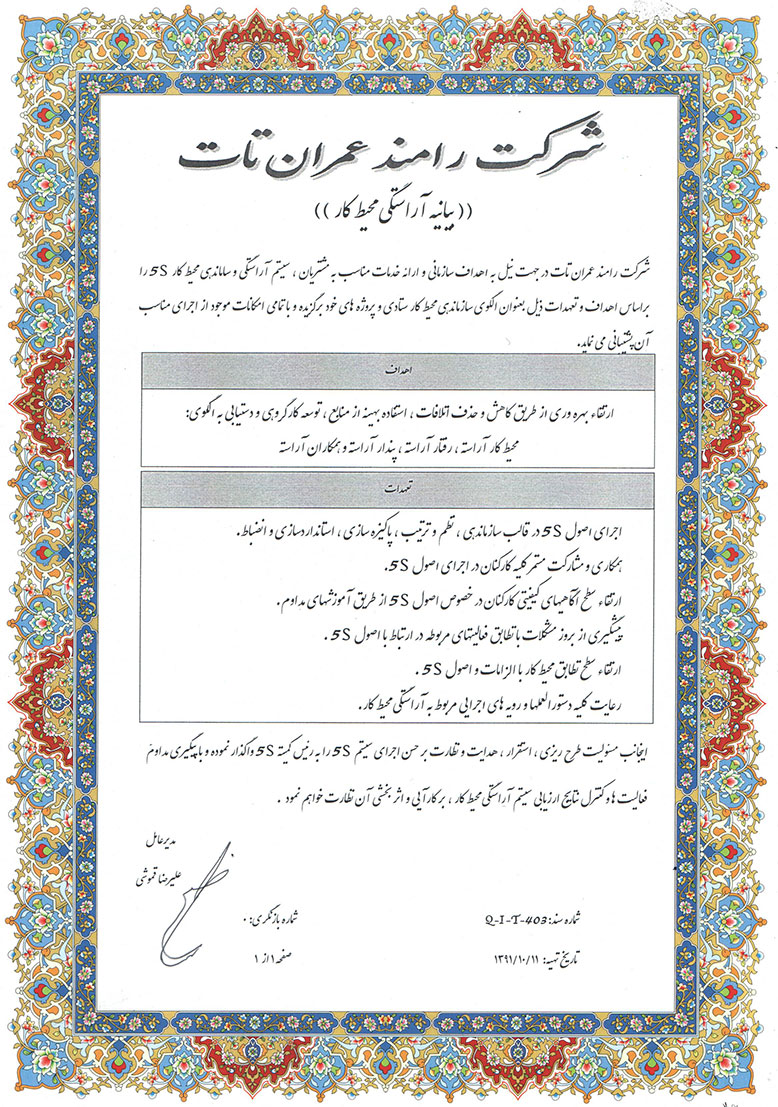 شرکت رامند عمران تات
((بیانیه آراستگی محیط کار))
شرکت رامند عمران تات در جهت نیل به اهداف سازمانی و ارائه خدمات مناسب به مشتریان ، سیستم آراستگی و ساماندهی محیط کار 5S را
براساس اهداف و تعهدات ذیل بعنوان الگوی سازماندهی محیط کار ستادی و پروژه های خود برگزیده و با تمامی امکانات موجود از اجرای مناسب
آن پشتیبانی می نماید.
اهداف
ارتقاء بهره وری از طریق کاهش و حذف اتلافات ، استفاده بهینه از منابع ، توسعه کار گروهی و دستیابی به الگوی:
محیط کار آراسته ، رفتار آراسته ، پندار آراسته و همکاران آراسته
تعهدات
اجرای اصول 5S در قالب سازماندهی ، نظم و ترتیب ، پاکیزه سازی ، استاندارد سازی و انضباط.
همکاری و مشارکت مستمر کلیه کارکنان در اجرای اصول 5S.
ارتقاء سطح آگاهیهای کیفیتی کارکنان در خصوص اصول 5S از طریق آموزشهای مداوم.
پیشگیری از بروز مشکلات با تطابق فعالیتهای مربوطه در ارتباط با اصول 5S .
ارتقاء سطح تطابق محیط کار با الزامات و اصول 5S .
رعایت کلیه دستورالعملها و رویه های اجرایی مربوط به آراستگی محیط کار.
اینجانب مسئولیت طرح ریزی ، استقرار ، هدایت و نظارت بر حسن اجرای سیستم 5S را به رئیس کمیته 5S واگذار نموده و با پیگیری مداوم
فعالیت ها و کنترل نتایج ارزیابی سیستم آراستگی محیط کار ، بر کارآیی و اثر بخشی آن نظارت خواهم نمود .
مدیرعامل
علیرضا قموشی
شماره سند: Q-I-T-403 شماره بازنگری: ۰
تاریخ تهیه: ۱۳۹۱/۱۰/۱۱ صفحه ۱ از ۱